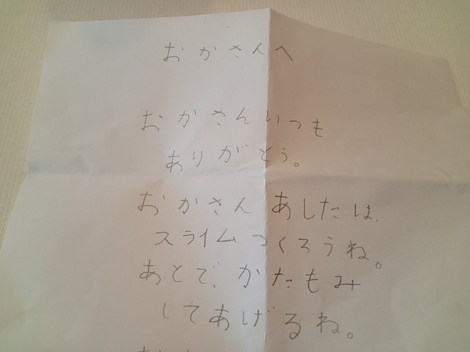 おかさんへ
おかさんいつも
ありがとう。
おかさんあしたは、
スライムつくろうね。
あとで、かたもみ
してあげるね。